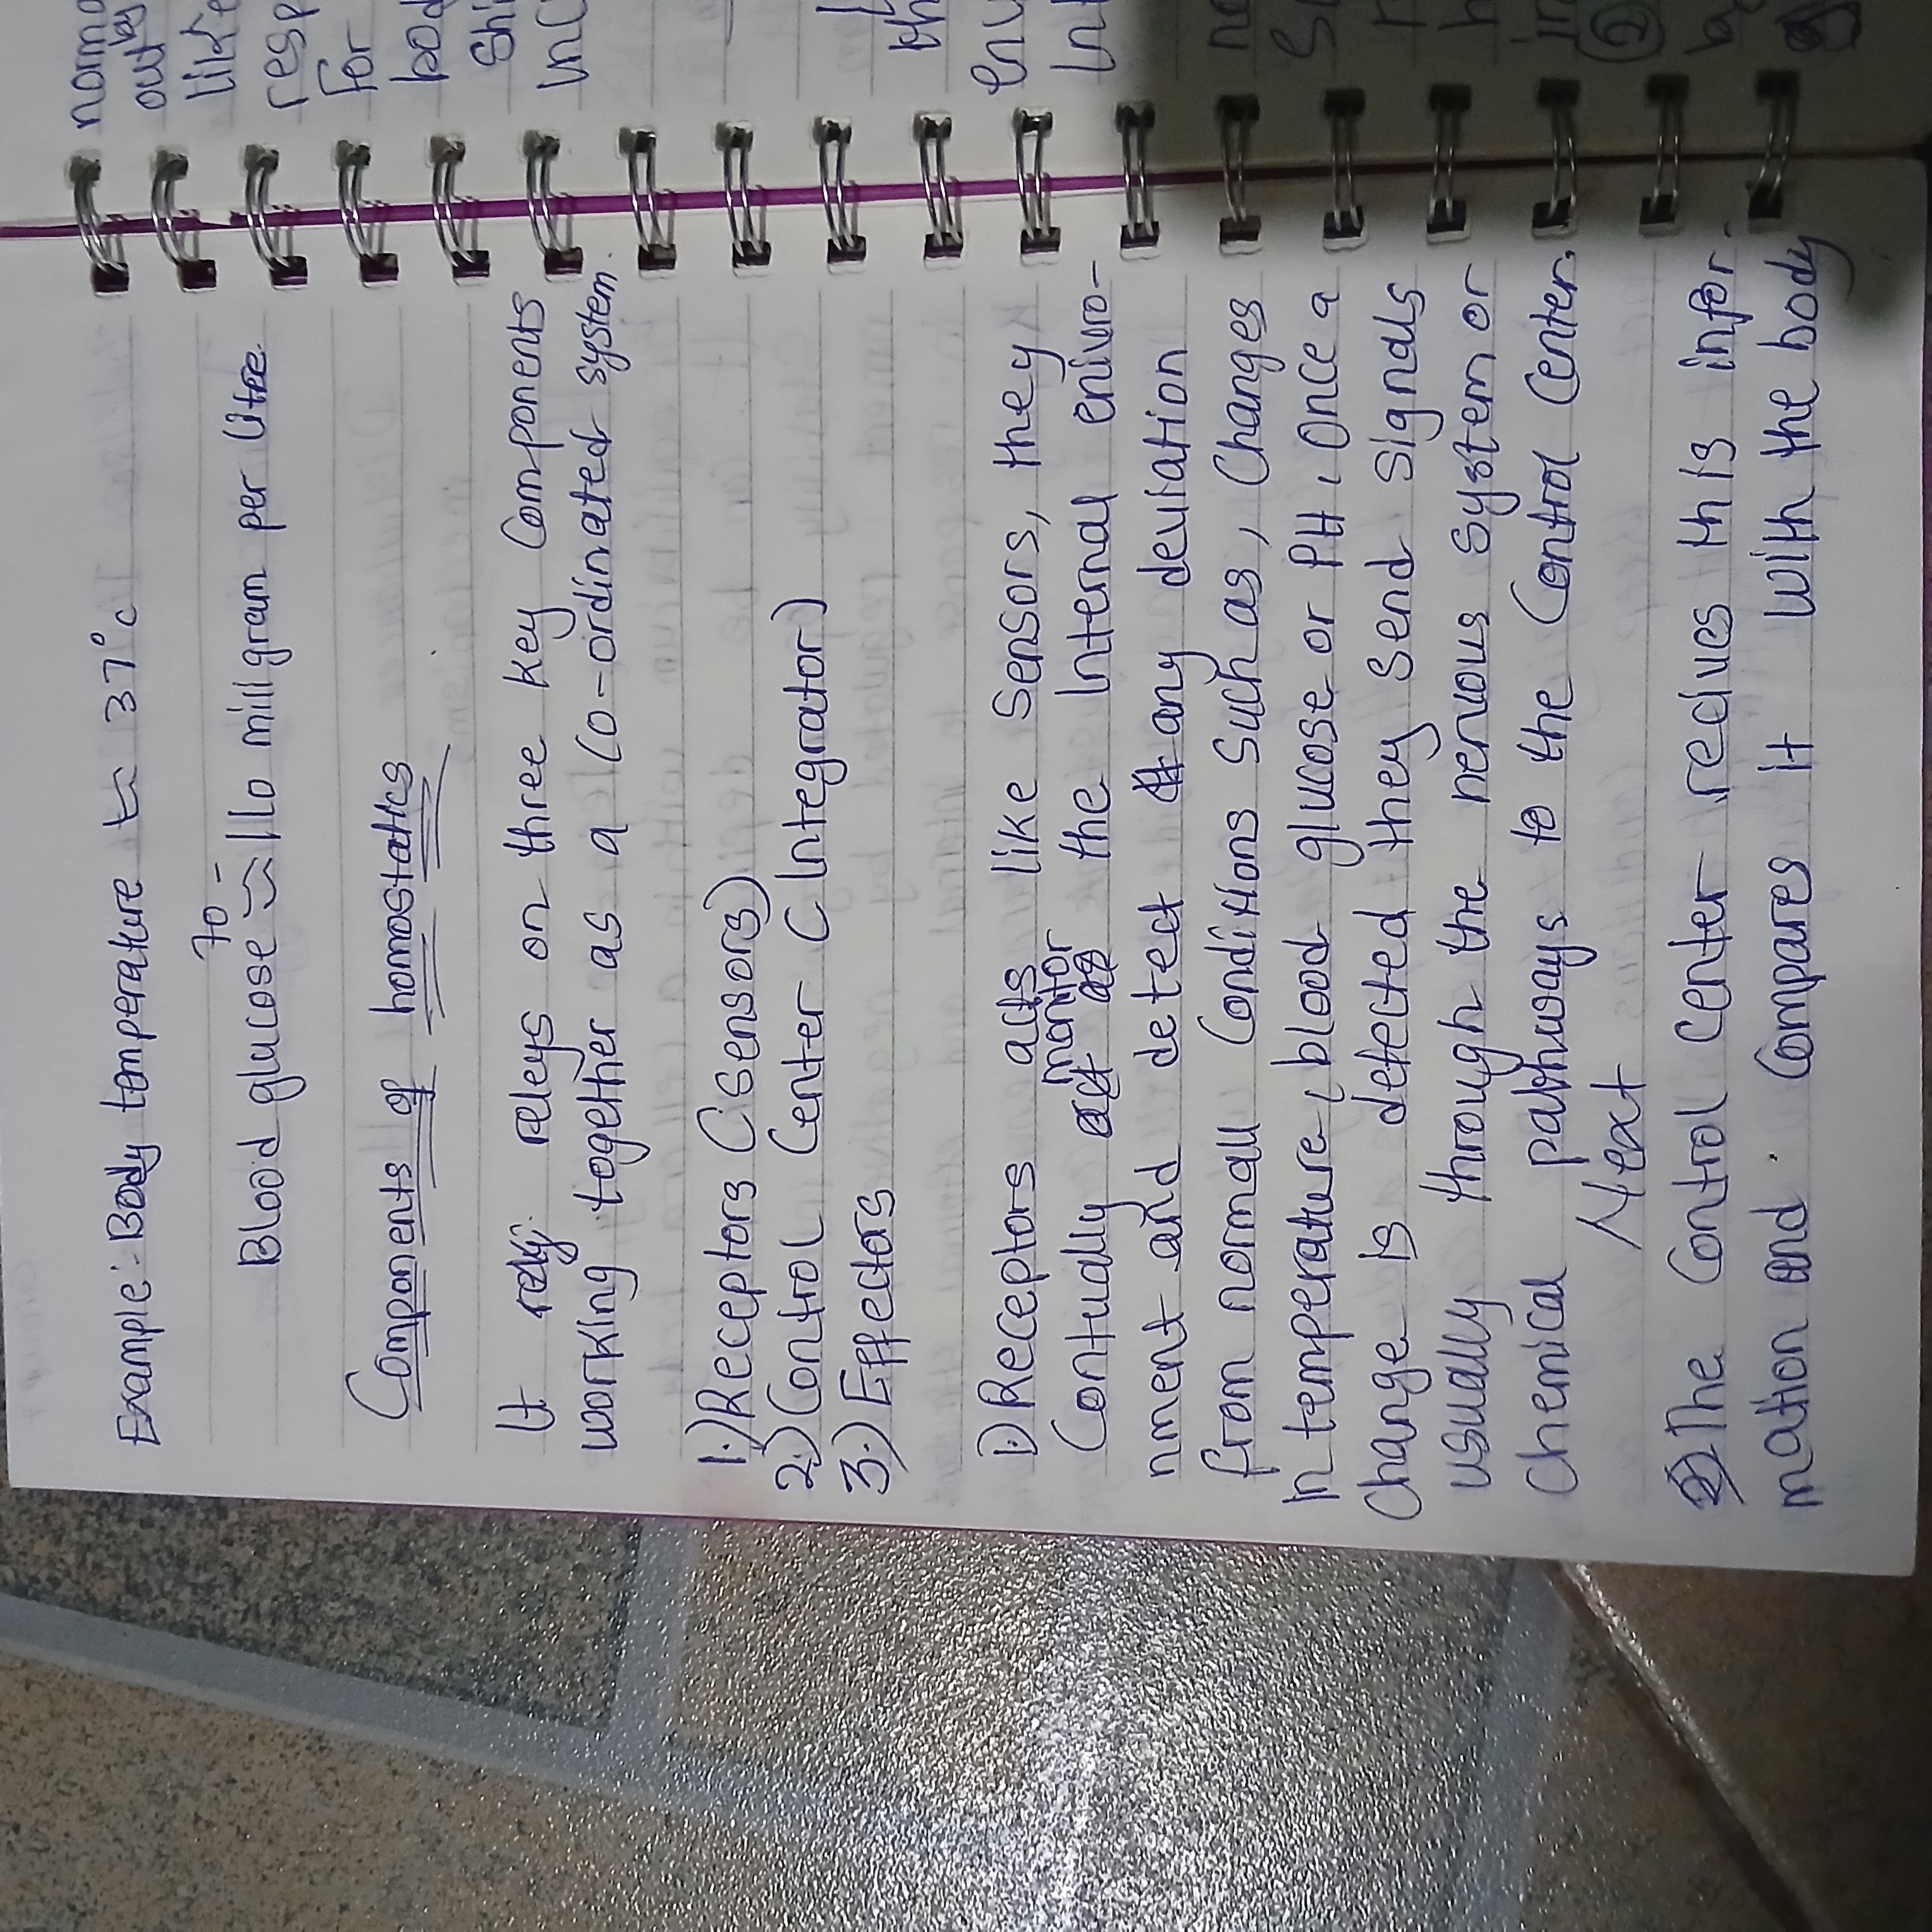 Example:- Body temperature ≈ 37°c
70 -
Blood glucose ≈ 110 milligram per litre.
Components of homostatics
It releys on three key Components
working together as a Co-ordinated system.
1.) Receptors (Sensors)
2.) Control Center (Integrator)
3.) Effectors
1.) Receptors acts like Sensors, they
Contually monitor the Internal enivro-
nment and detect any deviation
from normall Conditions Such as, Changes
In temperature, blood glucose or PH. Once a
Change is detected they Send Signals
usually through the nervous system or
Chemical pathways to the Control Center.
Next
2) The Control Center recives this infor-
mation and Compares It with the body
out
like
resp
For
bod
Shi
Inc
th
env
Int
ne
S
h
in
2
b